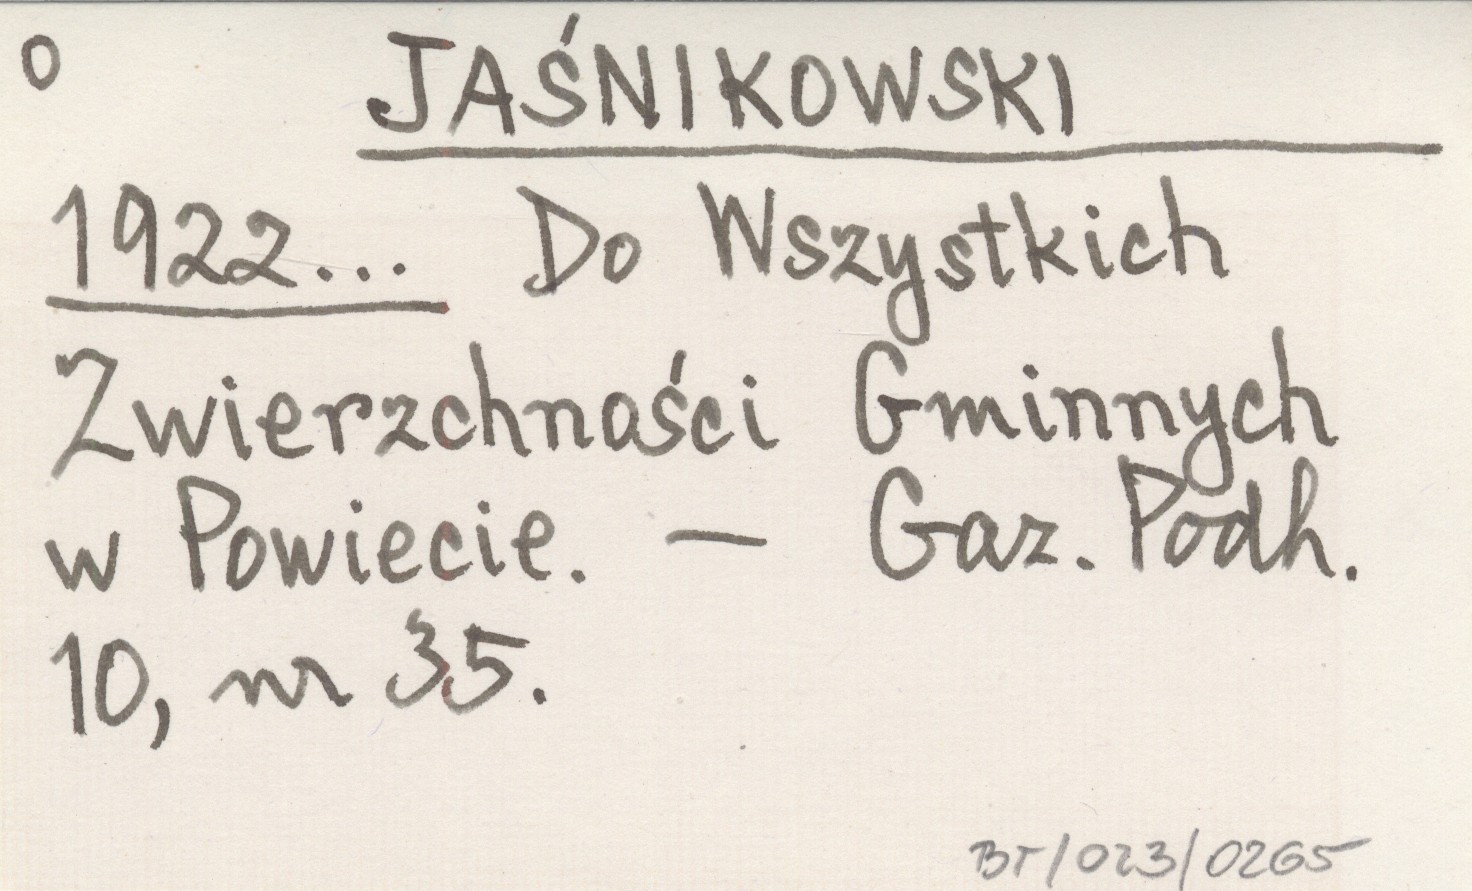 O JAŚNIKOWSKI
1922... Do Wszystkich
Zwierzchności Gminnych
w Powiecie. — Gaz. Podh.
10, nr 35.
BT/023/0265